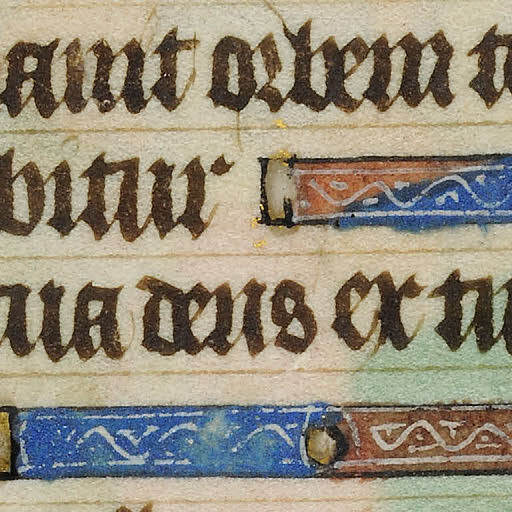 auit orbem t
bitur
ua deus ex tu